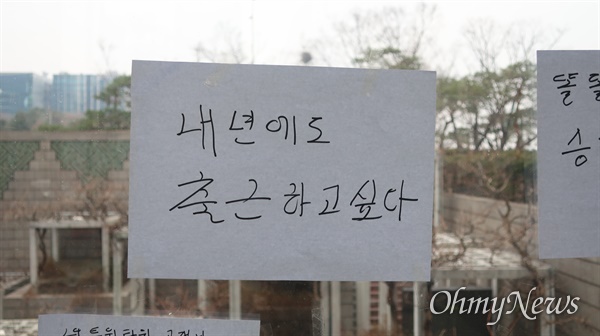 내년에도
출근하고싶다
똘똘
승
OhmyNews